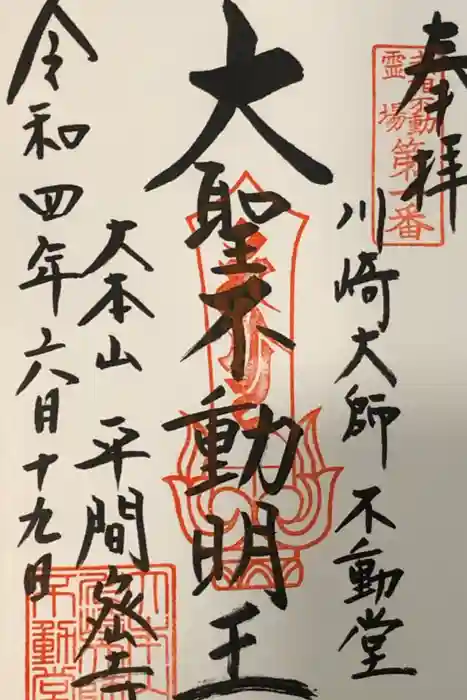 奉拝
霊場第一番
川崎大師 不動堂
大聖不動明王
大本山 平間寺
令和四年六月十九日
不動堂